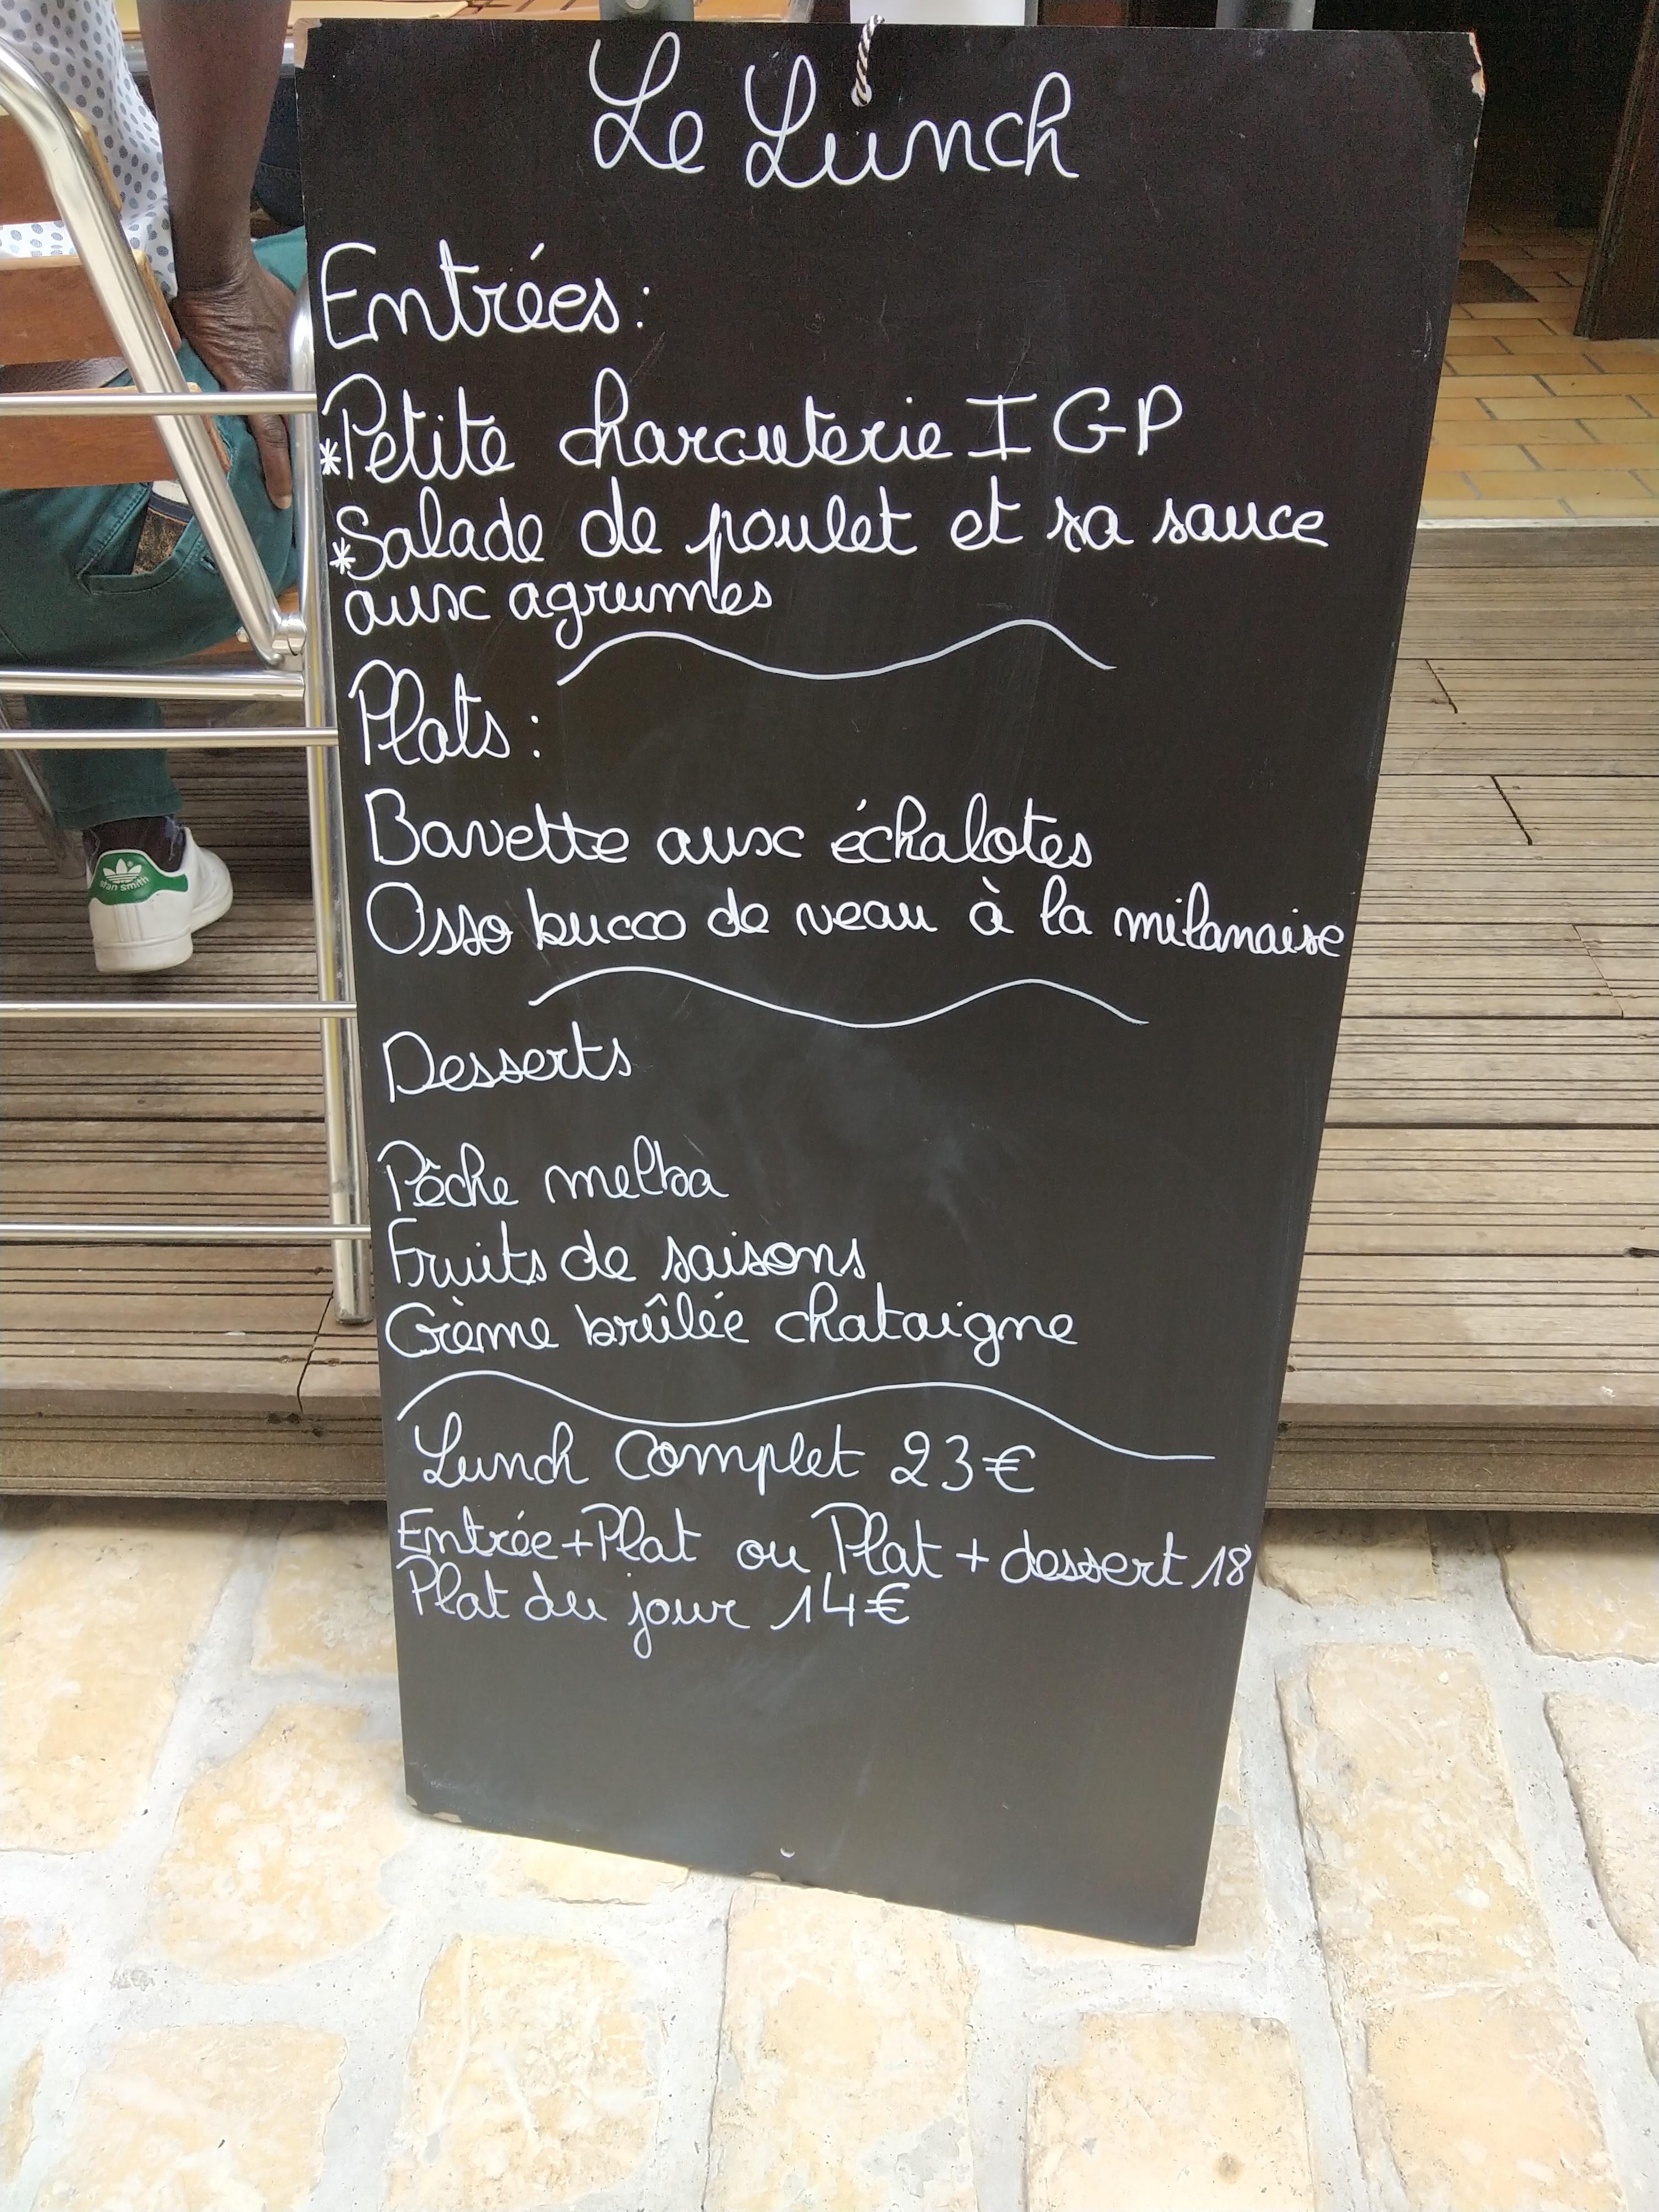 Le Lunch
Entrées:
*Petite charcuterie IGP
*Salade de poulet et sa sauce
aux agrumes
Plats:
Bavette aux échalotes
Osso bucco de veau à la milanaise
Desserts
Pêche melba
Fruits de saisons
Crème brûlée chataigne
Lunch complet 23€
Entrée+Plat ou Plat + dessert 18
Plat du jour 14€
stan smith